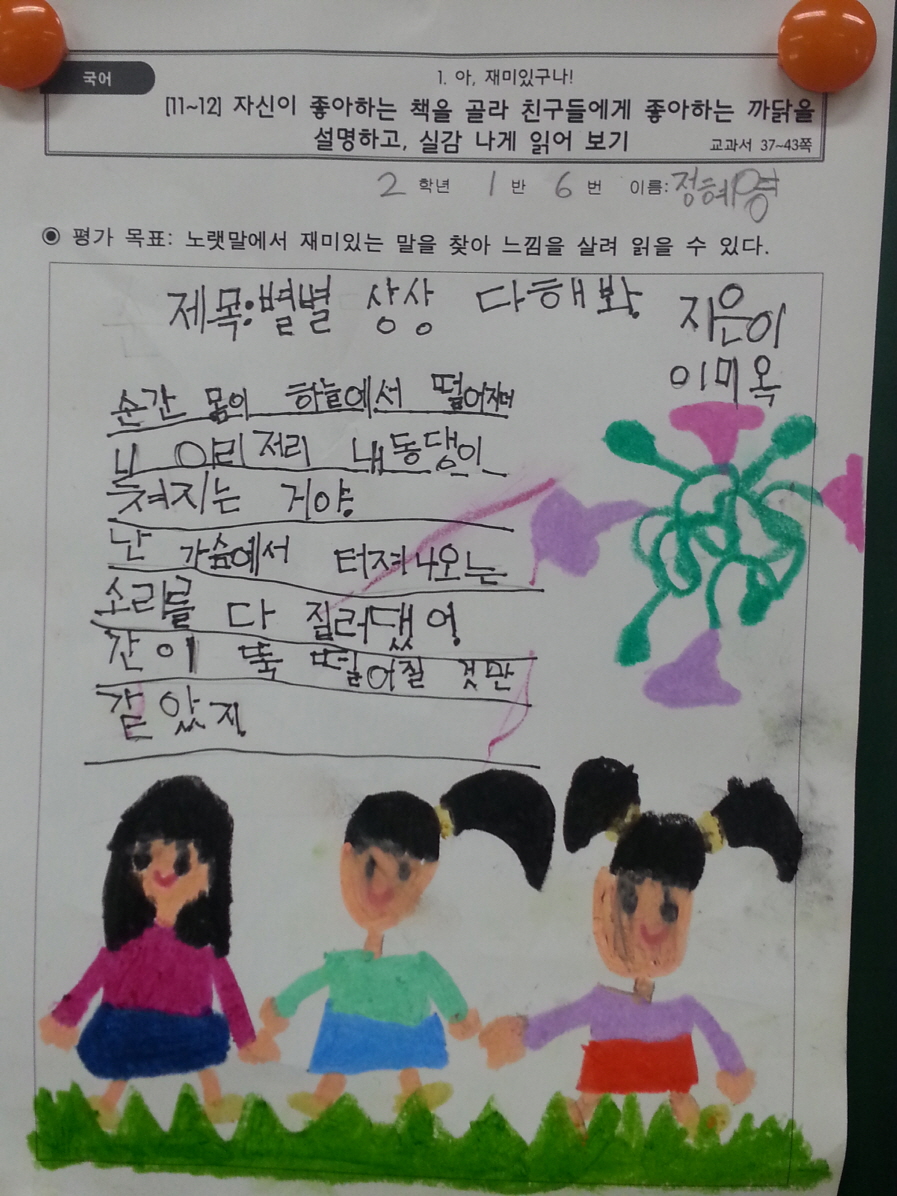 국어
1. 아, 재미있구나!
[11~12] 자신이 좋아하는 책을 골라 친구들에게 좋아하는 까닭을
설명하고, 실감 나게 읽어 보기
교과서 37~43쪽
2 학년 1 반 6 번 이름: 정혜영
◉ 평가 목표: 노랫말에서 재미있는 말을 찾아 느낌을 살려 읽을 수 있다.
제목: 별별 상상 다해봐 지은이
이미옥
순간 몸이 하늘에서 떨어지더
니 이리저리 내동댕이
쳐지는 거야
난 가슴에서 터져나오는
소리를 다 질러댔어
간이 뚝 떨어질 것만
같았지